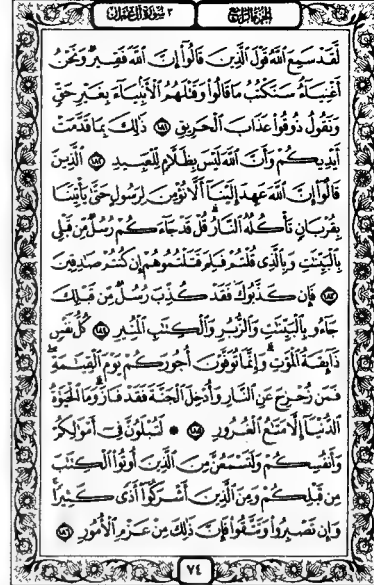 الجزء الرابع ٣ سورة آل عمران
لَّقَدْ سَمِعَ ٱللَّهُ قَوْلَ ٱلَّذِينَ قَالُوٓا۟ إِنَّ ٱللَّهَ فَقِيرٌ وَنَحْنُ
أَغْنِيَآءُ سَنَكْتُبُ مَا قَالُوا۟ وَقَتْلَهُمُ ٱلْأَنۢبِيَآءَ بِغَيْرِ حَقٍّ
وَنَقُولُ ذُوقُوا۟ عَذَابَ ٱلْحَرِيقِ ١٨١ ذَٰلِكَ بِمَا قَدَّمَتْ
أَيْدِيكُمْ وَأَنَّ ٱللَّهَ لَيْسَ بِظَلَّامٍ لِّلْعَبِيدِ ١٨٢ ٱلَّذِينَ
قَالُوٓا۟ إِنَّ ٱللَّهَ عَهِدَ إِلَيْنَآ أَلَّا نُؤْمِنَ لِرَسُولٍ حَتَّىٰ يَأْتِيَنَا
بِقُرْبَانٍ تَأْكُلُهُ ٱلنَّارُ قُلْ قَدْ جَآءَكُمْ رُسُلٌ مِّن قَبْلِى
بِٱلْبَيِّنَٰتِ وَبِٱلَّذِى قُلْتُمْ فَلِمَ قَتَلْتُمُوهُمْ إِن كُنتُمْ صَٰدِقِينَ
١٨٣ فَإِن كَذَّبُوكَ فَقَدْ كُذِّبَ رُسُلٌ مِّن قَبْلِكَ
جَآءُو بِٱلْبَيِّنَٰتِ وَٱلزُّبُرِ وَٱلْكِتَٰبِ ٱلْمُنِيرِ ١٨٤ كُلُّ نَفْسٍ
ذَآئِقَةُ ٱلْمَوْتِ وَإِنَّمَا تُوَفَّوْنَ أُجُورَكُمْ يَوْمَ ٱلْقِيَٰمَةِ
فَمَن زُحْزِحَ عَنِ ٱلنَّارِ وَأُدْخِلَ ٱلْجَنَّةَ فَقَدْ فَازَ وَمَا ٱلْحَيَوٰةُ
ٱلدُّنْيَآ إِلَّا مَتَٰعُ ٱلْغُرُورِ ١٨٥ ۞ لَتُبْلَوُنَّ فِىٓ أَمْوَٰلِكُمْ
وَأَنفُسِكُمْ وَلَتَسْمَعُنَّ مِنَ ٱلَّذِينَ أُوتُوا۟ ٱلْكِتَٰبَ
مِن قَبْلِكُمْ وَمِنَ ٱلَّذِينَ أَشْرَكُوٓا۟ أَذًى كَثِيرًا
وَإِن تَصْبِرُوا۟ وَتَتَّقُوا۟ فَإِنَّ ذَٰلِكَ مِنْ عَزْمِ ٱلْأُمُورِ ١٨٦
٧٤